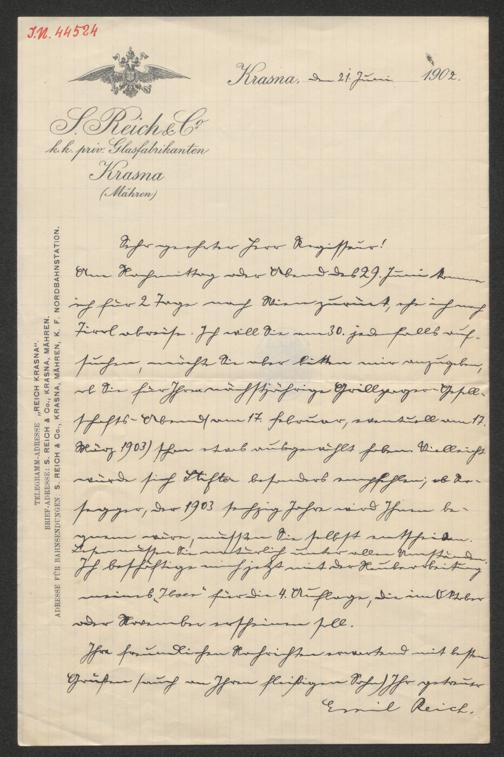 J.N. 44524
Krasna, den 21. Juni 1902.
S. Reich & Co
k.k. priv. Glasfabrikanten
Krasna
(Mähren)
TELEGRAMM-ADRESSE „REICH KRASNA".
BRIEF-ADRESSE: S. REICH & Co., KRASNA, MÄHREN.
ADRESSE FÜR BAHNSENDUNGEN: S. REICH & Co., KRASNA, MÄHREN, K. F. NORDBAHNSTATION.
Sehr geehrter Herr Regisseur!
Am Nachmittag oder Abend des 29. Juni komme
ich für 2 Tage nach Wien zurück, ehe ich nach
Tirol abreise. Ich will Sie am 30. jedenfalls auf-
suchen, möcht Sie aber bitten mir anzugeben,
ob Sie für Ihren nächstjährigen Grillparzer-Gesell-
schafts-Abend (am 17. Februar, eventuell am 17.
März 1903) schon etwas ausgewählt haben. Vielleicht
würde sich Stifter besonders empfehlen; ob Ro-
segger, der 1903 sechzig Jahre wird Ihnen be-
quem wär, müssten Sie selbst entscheiden.
Lesen müssen Sie natürlich unter allen Umständen.
Ich beschäftige mich jetzt mit der Neubearbeitung
meines „Ibsen" für die 4. Auflage, die im Oktober
oder November erscheinen soll.
Ihre freundlichen Nachrichten erwartend mit besten
Grüßen (auch an Ihren fleißigen Sohn) Ihr getreuer
Emil Reich.